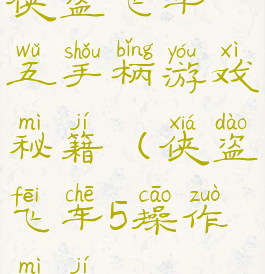 侠盗飞车
wǔ shǒu bǐng yóu xì
五手柄游戏
mì jí xiá dào
秘籍（侠盗
fēi chē cāo zuò
飞车5操作
mì jí